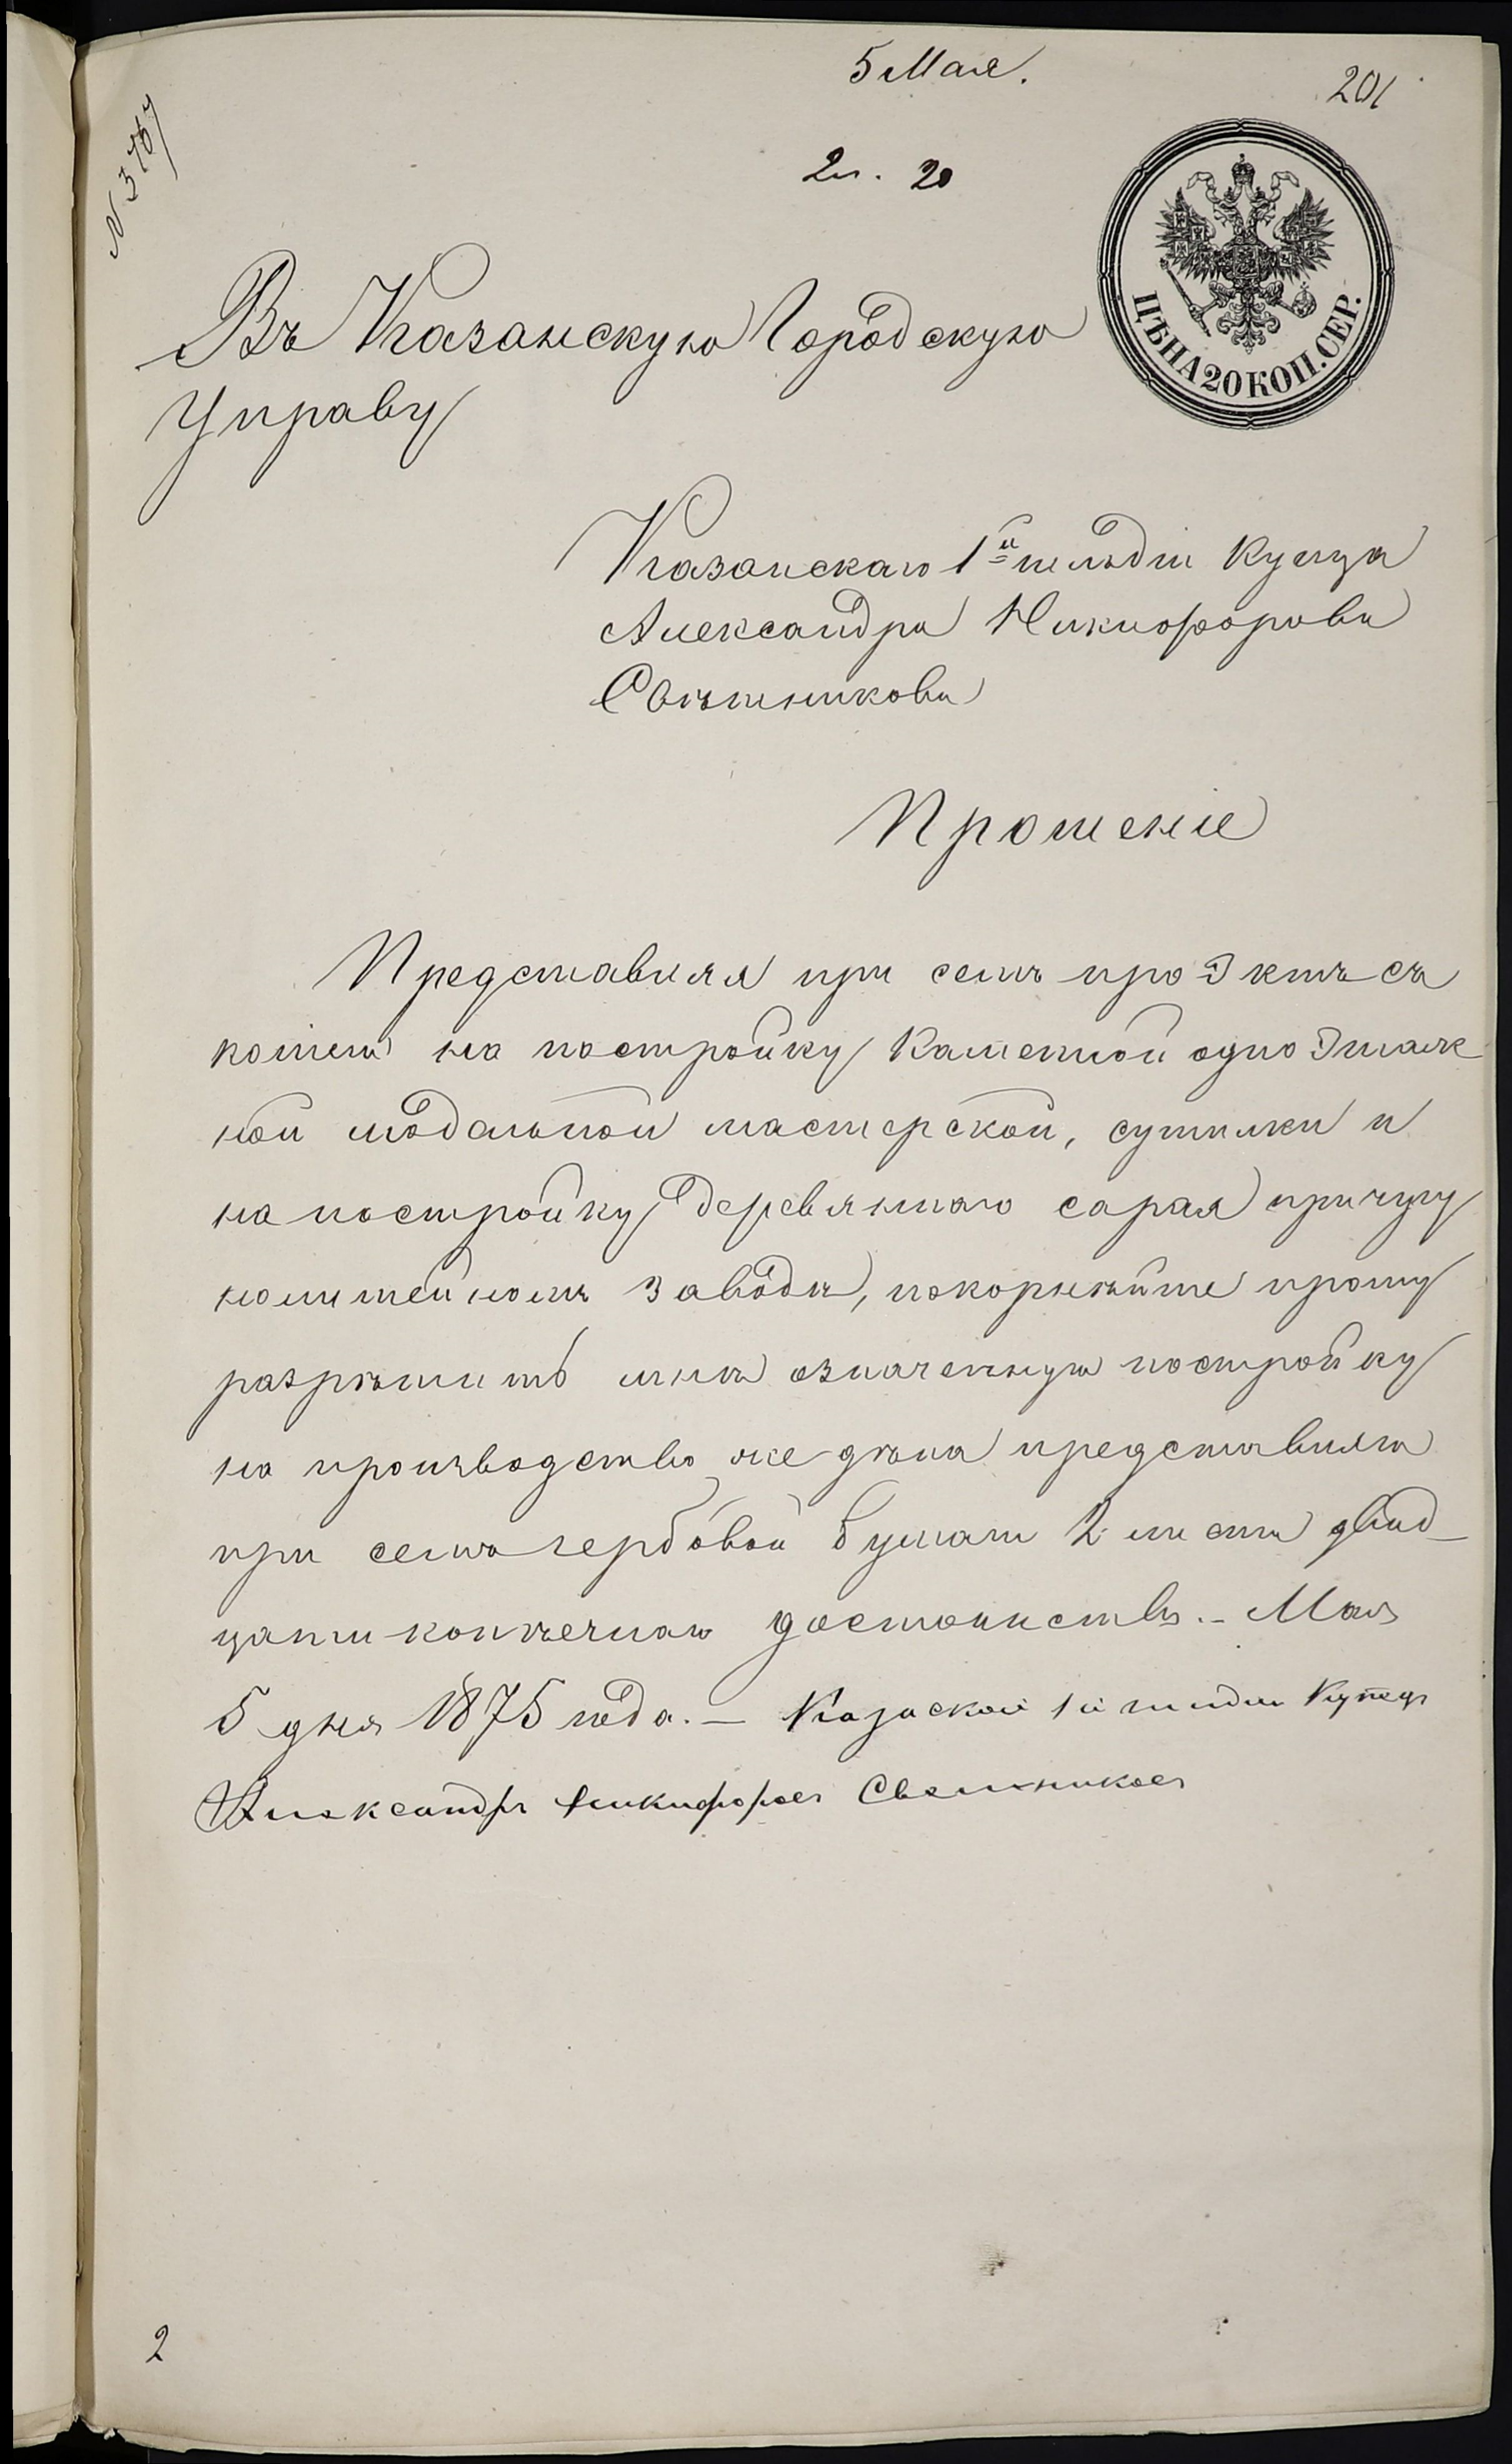 5 Мая.
201
2 л. 20
ЦѢНА 20 КОП. СЕР.
Въ Казанскую Городскую
Управу
Казанскаго 1й гильдіи Купца
Александра Никифорова
Свѣшникова
Прошеніе
Представляя при семъ проэктъ съ
копіею на постройку Каменной одноэтаж
ной модальной мастерской, сушилки и
на постройку деревяннаго сарая причугу
нолитейномъ заводѣ, покорнѣйше прошу
разрѣшить мнѣ означенную постройку
на производство же дѣла представляю
при семъ гербовой бумаги 2 листа двад-
цати копѣечнаго достоинства. - Мая
5 дня 1875 года. — Казаской 1й гилдии Купецъ
Александръ Никифоровъ Свешниковъ
2